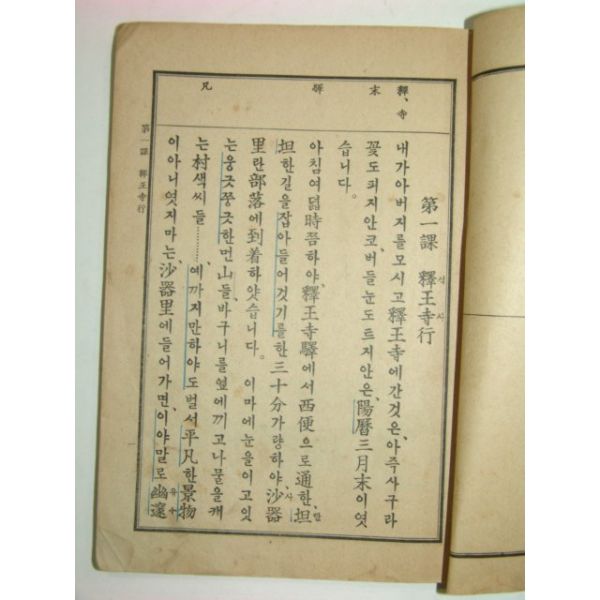 釋、寺
末
驛
凡
第一課 釋王寺行
석 사
내가아버지를모시고釋王寺에간것은、아즉사구라
꽃도피지안코、버들눈도트지안은、陽曆三月末이엿
습니다。
아침여덟時쯤하야、釋王寺驛에서西便으로通한、坦
탄
坦한길을잡아들어것기를한三十分가량하야、沙器
사
里란部落에到着하얏습니다。이마에눈을이고잇
는웅긋쭝긋한먼山들、바구니를옆에끼고나물을캐
는村색씨들………예까지만하야도벌서平凡한景物
이아니엿지마는、沙器里에들어가면、이야말로幽邃
유수
第一課 釋王寺行